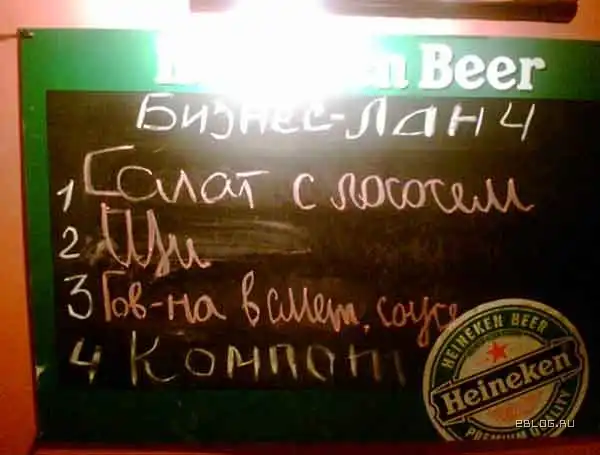 Beer
Бизнес-Ланч
1 Салат с лососем
2 Щи
3 Гов-на в смет. соусе
4 Компот
HEINEKEN BEER
Heineken
PREMIUM QUALITY
2BLOG.RU